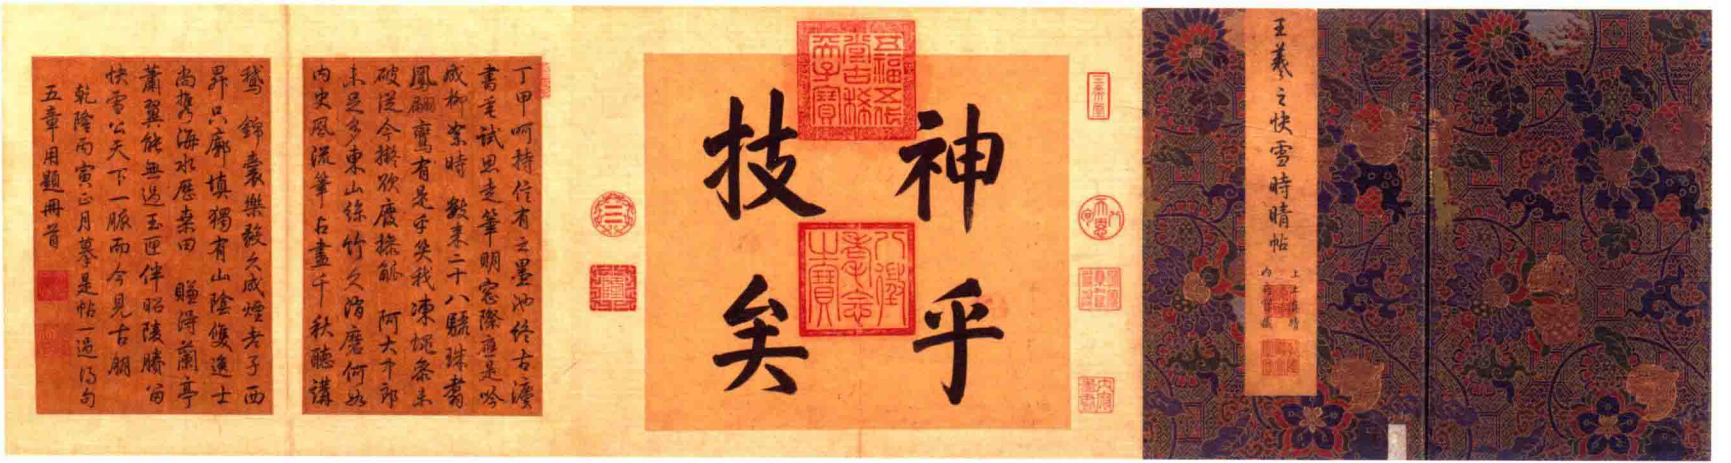 王羲之快雪時晴帖
上上真蹟
內府寶藏
神乎
技矣
五福五代堂古稀天子寶
八徵耄念之寶
丁甲呵持信有之墨池終古瀋
書毫試思走筆明窓際應是吟
成柳絮時 數來二十八驪珠翥
鳳翩鸞有是乎笑我凍蠅條未
破從今擬欲廢操觚 阿大中郎
未足多東山絲竹久消磨何如
內史風流筆占盡千秋聽講
鵝 錦囊樂毅久成煙老子西
昇只廓填獨有山陰雙逸士
尚携海水歷桑田 賺得蘭亭
蕭翼能無過玉匣伴昭陵勝留
快雪公天下一脈而今見古朋
乾隆丙寅正月摹是帖一過得句
五章用題冊首